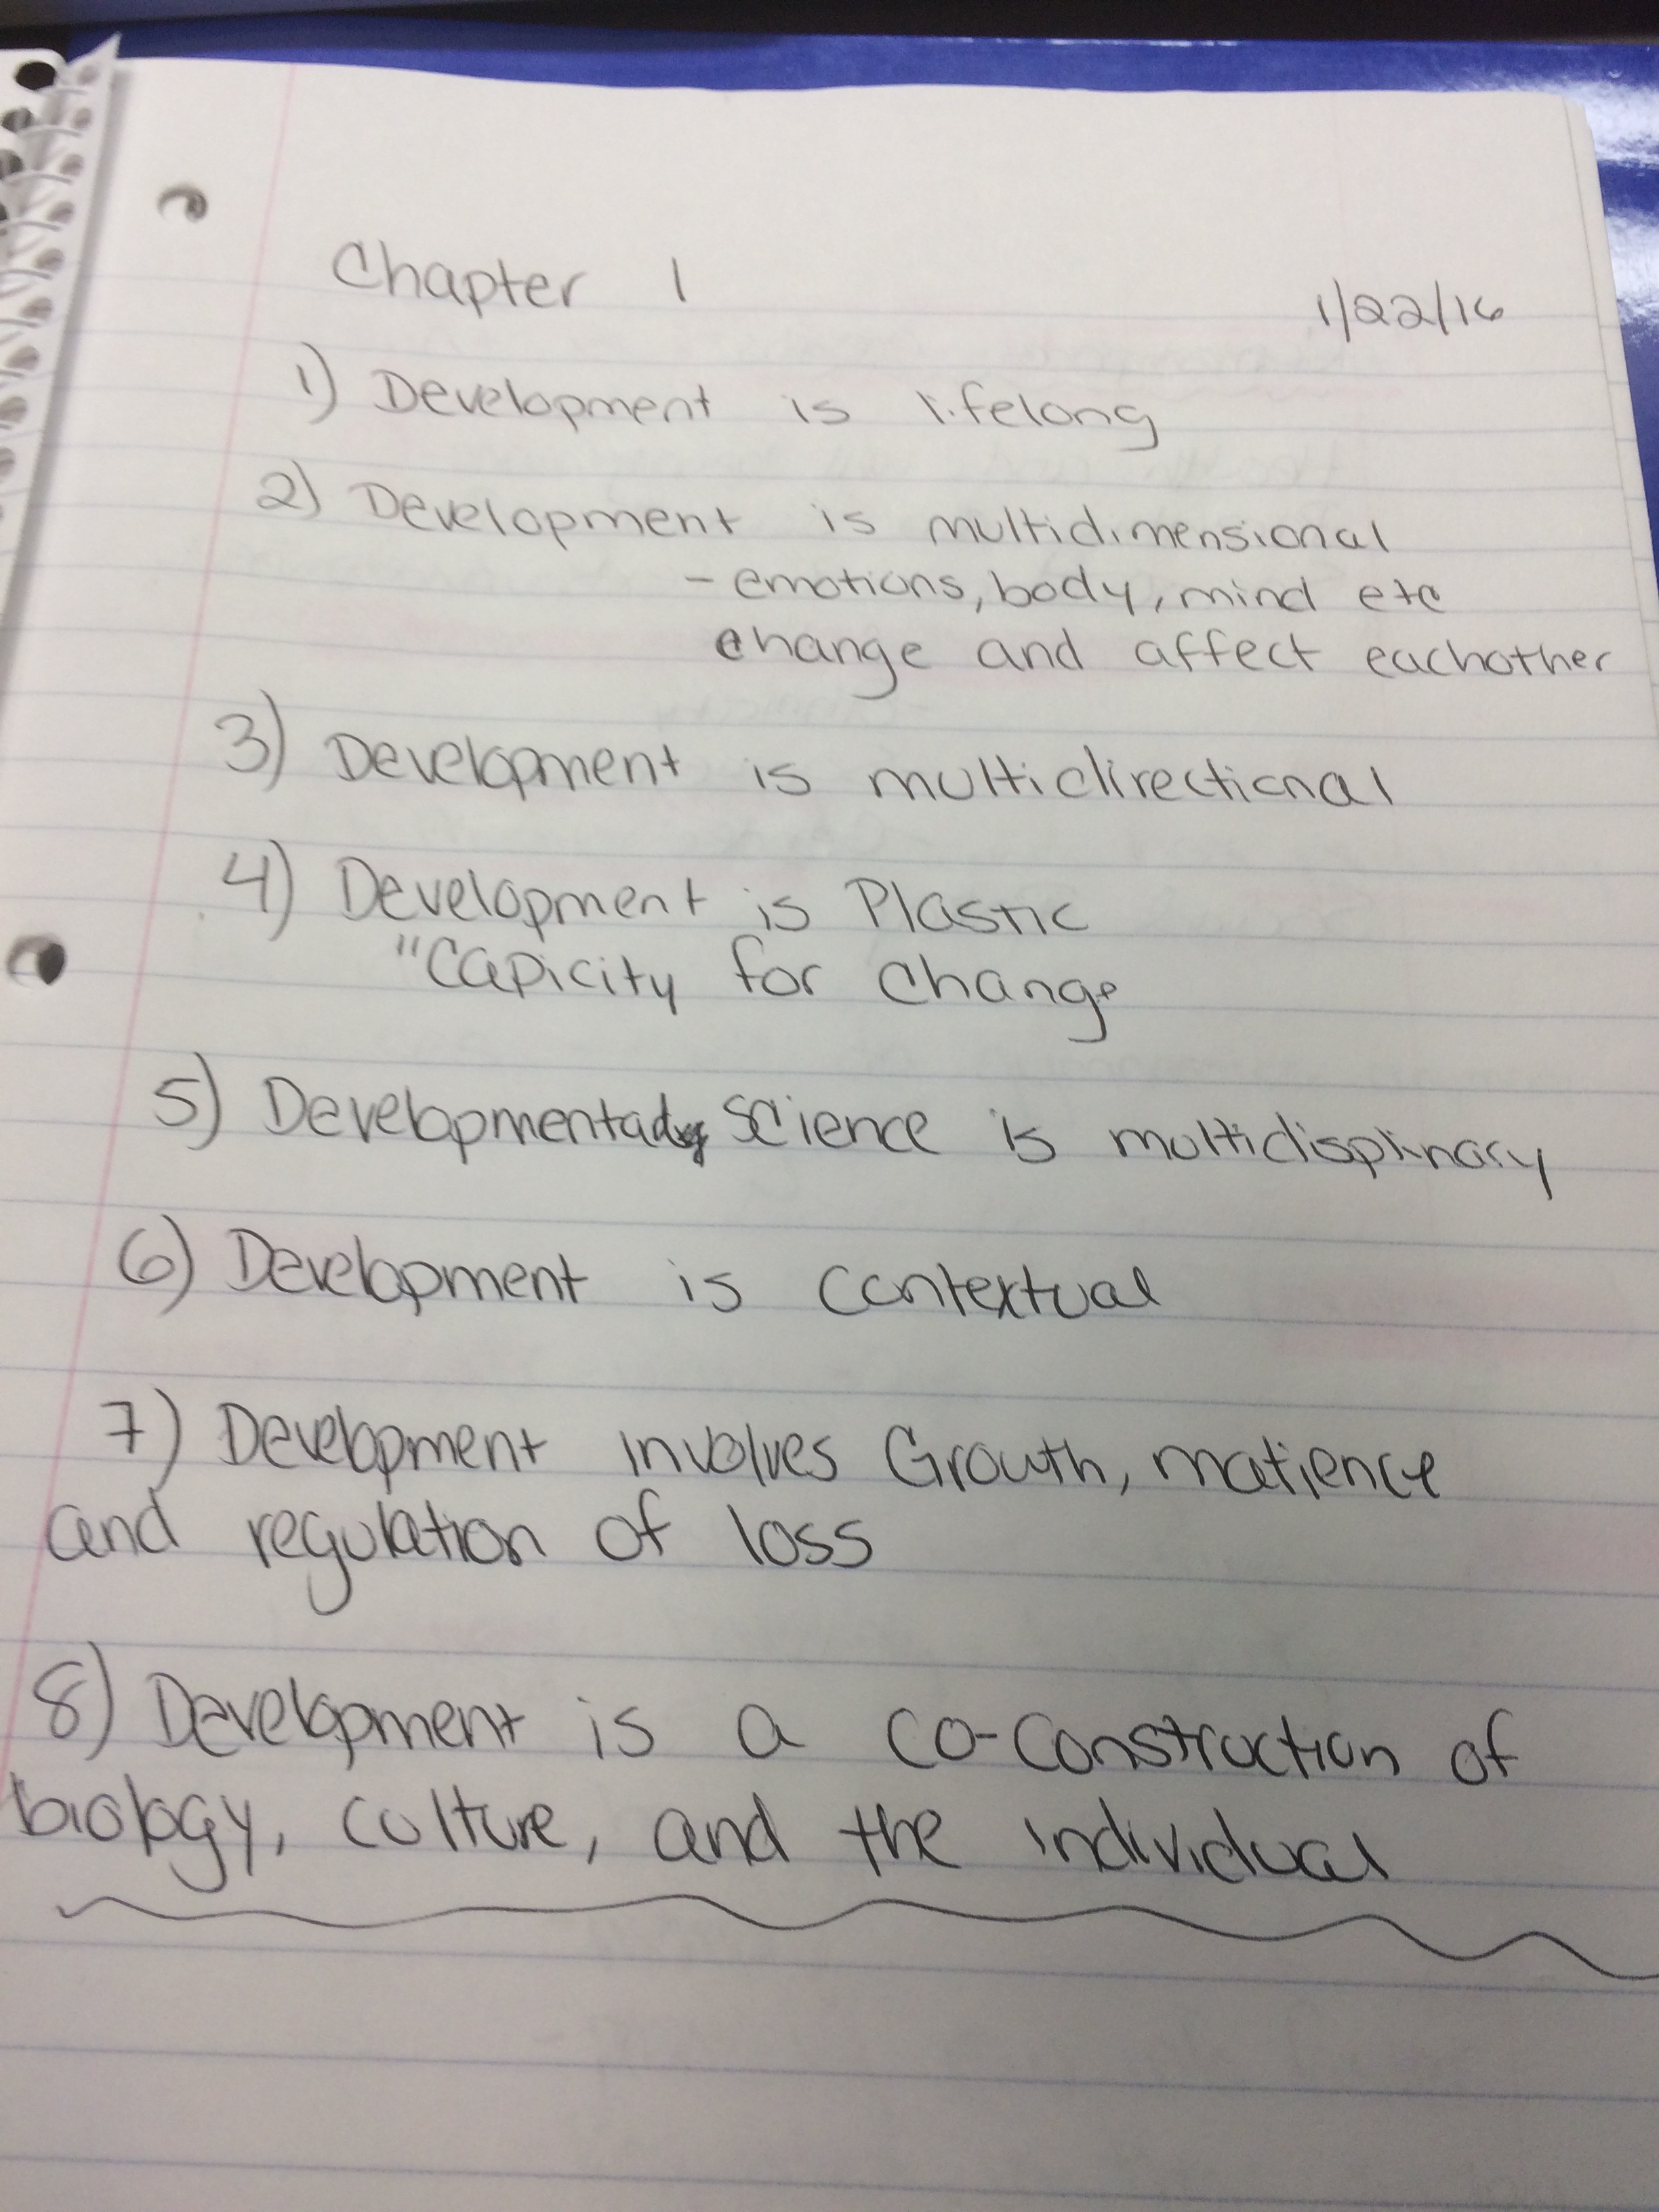 Chapter 1
1/22/16
1) Development is lifelong
2) Development is multidimensional
- emotions, body, mind etc
change and affect eachother
3) Development is multidirectional
4) Development is Plastic
"Capicity for change
5) Developmental science is multidisplinary
6) Development is contextual
7) Development involves Growth, matience
and regulation of loss
8) Development is a co-construction of
biology, culture, and the individual